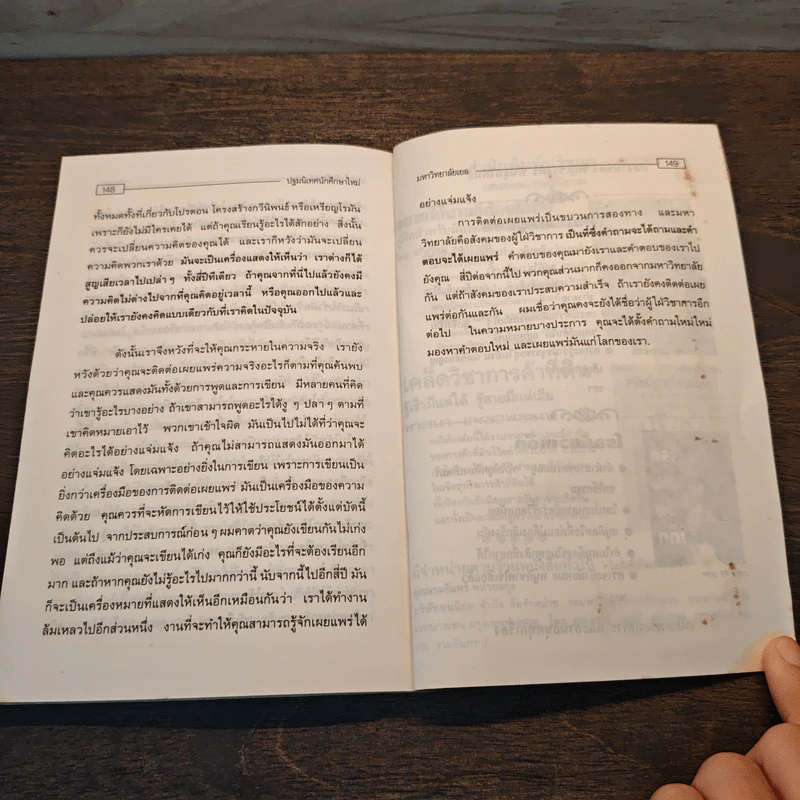 148
ปฐมนิเทศนักศึกษาใหม่
ทั้งหมดทั้งที่เกี่ยวกับโปรตอน โครงสร้างกวีนิพนธ์ หรือเหรียญโรมัน
เพราะก็ยังไม่มีใครเคยได้ แต่ถ้าคุณเรียนรู้อะไรได้สักอย่าง สิ่งนั้น
ควรจะเปลี่ยนความคิดของคุณได้ และเราก็หวังว่ามันจะเปลี่ยน
ความคิดพวกเราด้วย มันจะเป็นเครื่องแสดงให้เห็นว่า เราต่างก็ได้
สูญเสียเวลาไปเปล่า ๆ ทั้งสี่ปีทีเดียว ถ้าคุณจากที่นี่ไปแล้วยังคงมี
ความคิดไม่ต่างไปจากที่คุณคิดอยู่เวลานี้ หรือคุณออกไปแล้วและ
ปล่อยให้เรายังคงคิดแบบเดียวกับที่เราคิดในปัจจุบัน
ดังนั้นเราจึงหวังที่จะให้คุณกระหายในความจริง เรายัง
หวังด้วยว่าคุณจะติดต่อเผยแพร่ความจริงอะไรก็ตามที่คุณค้นพบ
และคุณควรแสดงมันทั้งด้วยการพูดและการเขียน มีหลายคนที่คิด
ว่าเขารู้อะไรบางอย่าง ถ้าเขาสามารถพูดอะไรได้งู ๆ ปลา ๆ ตามที่
เขาคิดหมายเอาไว้ พวกเขาเข้าใจผิด มันเป็นไปไม่ได้ที่ว่าคุณจะ
คิดอะไรได้อย่างแจ่มแจ้ง ถ้าคุณไม่สามารถแสดงมันออกมาได้
อย่างแจ่มแจ้ง โดยเฉพาะอย่างยิ่งในการเขียน เพราะการเขียนเป็น
ยิ่งกว่าเครื่องมือของการติดต่อเผยแพร่ มันเป็นเครื่องมือของความ
คิดด้วย คุณควรที่จะหัดการเขียนไว้ให้ใช้ประโยชน์ได้ตั้งแต่บัดนี้
เป็นต้นไป จากประสบการณ์ก่อน ๆ ผมคาดว่าคุณยังเขียนกันไม่เก่ง
พอ แต่ถึงแม้ว่าคุณจะเขียนได้เก่ง คุณก็ยังมีอะไรที่จะต้องเรียนอีก
มาก และถ้าหากคุณยังไม่รู้อะไรไปมากกว่านี้ นับจากนี้ไปอีกสี่ปี มัน
ก็จะเป็นเครื่องหมายที่แสดงให้เห็นอีกเหมือนกันว่า เราได้ทำงาน
ล้มเหลวไปอีกส่วนหนึ่ง งานที่จะทำให้คุณสามารถรู้จักเผยแพร่ได้
มหาวิทยาลัยเยล
149
อย่างแจ่มแจ้ง
การติดต่อเผยแพร่เป็นขบวนการสองทาง และมหา
วิทยาลัยคือสังคมของผู้ใฝ่วิชาการ เป็นที่ซึ่งคำถามจะได้ถามและคำ
ตอบจะได้เผยแพร่ คำถามของคุณมายังเราและคำตอบของเราไป
ยังคุณ สี่ปีต่อจากนี้ไป พวกคุณส่วนมากก็คงออกจากมหาวิทยาลัย
กัน แต่ถ้าสังคมของเราประสบความสำเร็จ ถ้าเรายังคงติดต่อเผย
แพร่ต่อกันและกัน ผมเชื่อว่าคุณคงจะยังได้ชื่อว่าผู้ใฝ่วิชาสารอีก
ต่อไป ในความหมายบางประการ คุณจะได้ตั้งคำถามใหม่ใหม่
มองหาคำตอบใหม่ และเผยแพร่มันแก่โลกของเรา.